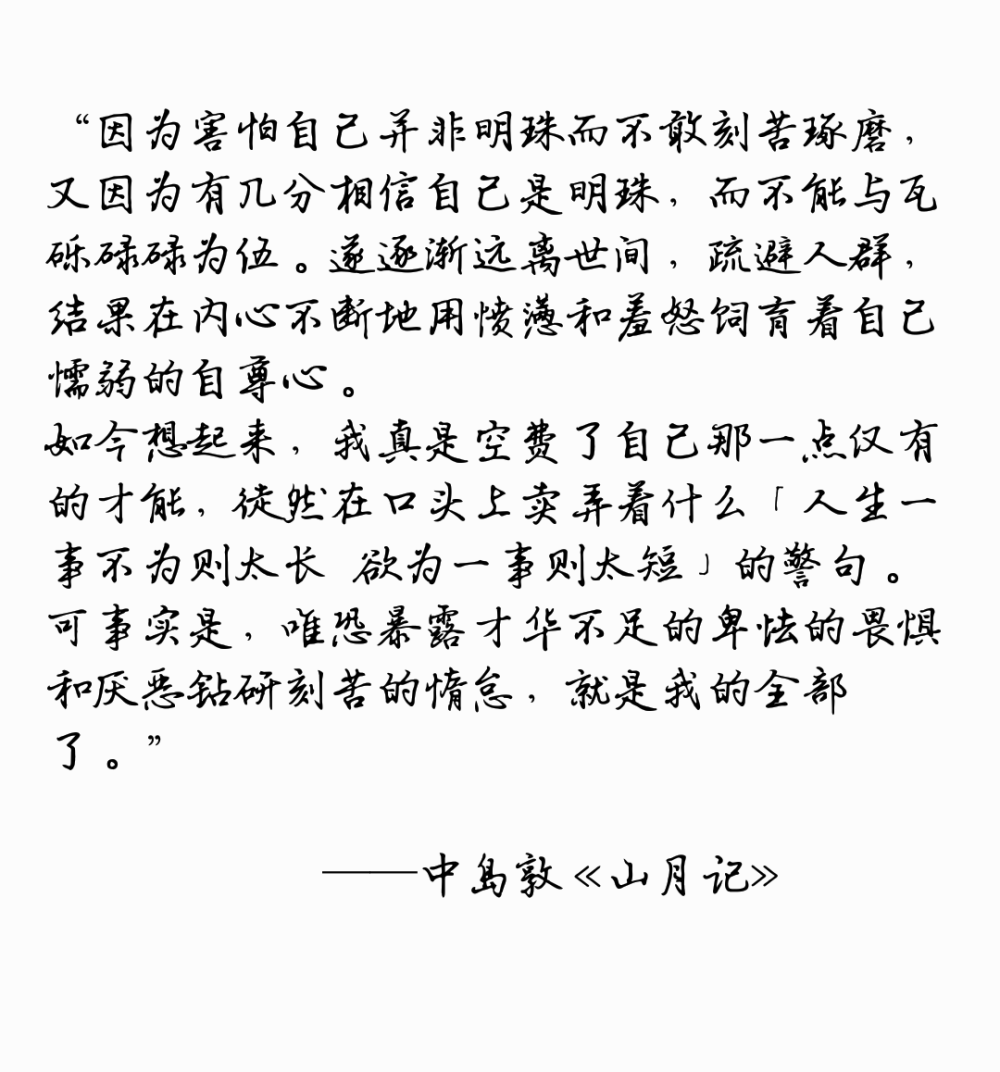 “因为害怕自己并非明珠而不敢刻苦琢磨，
又因为有几分相信自己是明珠，而不能与瓦
砾碌碌为伍。遂逐渐远离世间，疏避人群，
结果在内心不断地用愤懑和羞怒饲育着自己
懦弱的自尊心。
如今想起来，我真是空费了自己那一点仅有
的才能，徒然在口头上卖弄着什么「人生一
事不为则太长 欲为一事则太短」的警句。
可事实是，唯恐暴露才华不足的卑怯的畏惧
和厌恶钻研刻苦的惰怠，就是我的全部
了。”
——中岛敦《山月记》